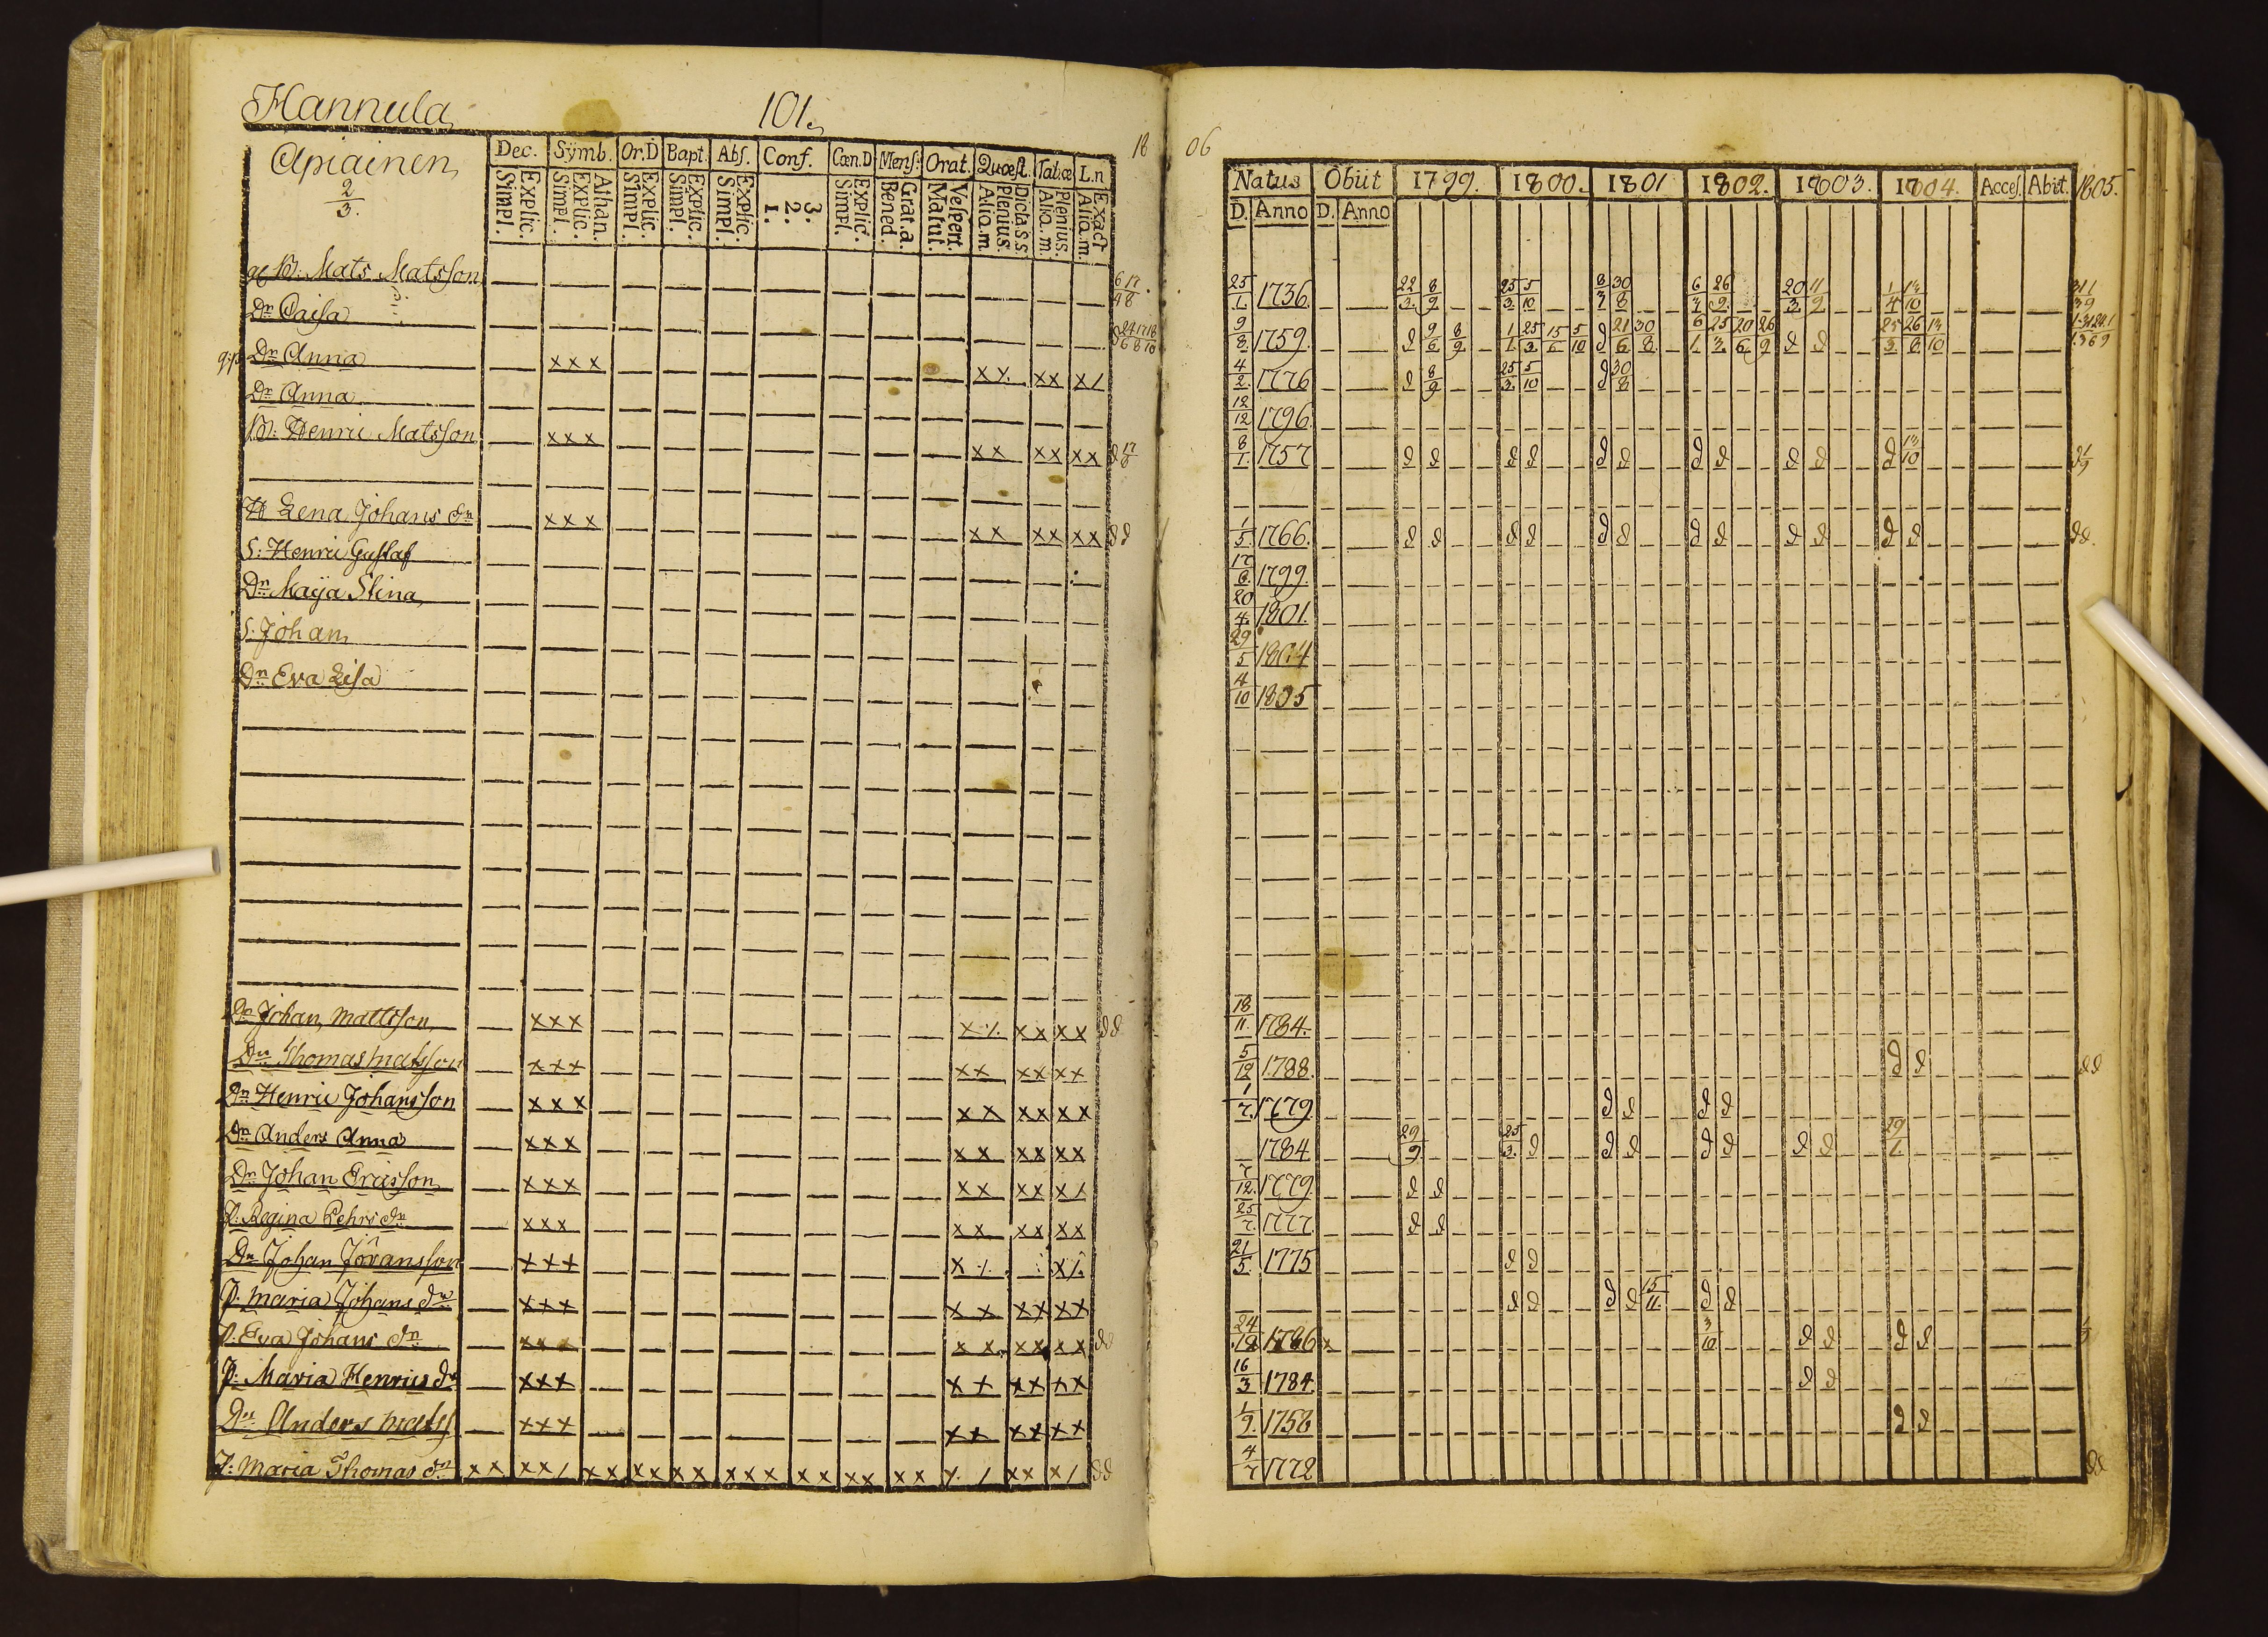 Hannula
101.
18
06
Apiainen
2/3.
Dec.
Symb.
Or.D
Bapt.
Abs.
Conf.
Cœn.D
Mens.
Orat.
Quæst.
Tabæ
L.n
Explic. Simpl.
Athan. Explic. Simpl.
Explic. Simpl.
Explic. Simpl.
Explic. Simpl.
3. 2. 1.
Explic. Simpl.
Grat.a. Bened.
Vespert. Matut.
Dicta s.s. Plenius. Aliq.m.
Plenius. Aliq.m.
Exact Aliq.m.
Natus
Obiit
1799.
1800.
1801
1802.
1803.
1804.
Acces.
Abit.
1805.
D. Anno D. Anno
B: Mats Matsson 25/1. 1736. 22/3. 8/9 25/3. 5/10 8/3 30/8 6/3 26/9. 20/3 11/9 1/4 14/10
Dr Caisa 9/8. 1759. d 9/6 8/9 1/1. 25/3. 15/6 5/10 d 21/6 30/8 6/1. 25/3. 20/6 26/9 d d 25/3. 26/8. 14/10
Dr Anna xxx xx xx x/ 4/2. 1776 d 8/9 25/3. 5/10 d 30/8
Dr Anna 12/12 1796.
B: Henric Matsson xxx xx xx xx 8/1. 1757 d d d d d d d d d d d 14/10
H Lena Johans dr xxx xx xx xx d d 1/5. 1766. d d d d d d d d d d d d d d.
S: Henric Gustaf 17/6. 1799.
Dr Maja Stina 20/4. 1801.
S: Johan 29/5 1804
Dr Eva Lisa 4/10 1805
Dr Johan Mattsson xxx x/. xx xx d d 18/11. 1784.
Dr Thomas Matsson xxx xx xx xx 5/12 1788. d d d d
Dr Henric Johansson xxx xx xx xx 1/7. 1779 d d d d
Dr Anders Anna xxx xx xx xx 1784 29/9. 25/3. d d d d d d d 29/1.
Dr Johan Ericsson xxx xx xx x/ 7/12. 1779. d d
P. Regina Pehrs dr xxx xx xx xx 25/7. 1777. d d
Dr Johan Jöransson xxx x/. x/. 21/5. 1775 d d
P. Maria Johans dr xxx xx xx xx d d d d 15/11. d d
P: Eva Johans dr xxx xx. xx xx d d 24/12 1786 x 3/10 d d d d
P: Maria Henrics dr xxx xx xx xx 16/3 1784. d d
Dr Anders Mats xxx xx xx xx 1/9. 1758 d d
P: Maria Thomas dr xx xx/ xx xx xx xxx xx xx xx x./ xx x/ d d 4/7 1772 d d